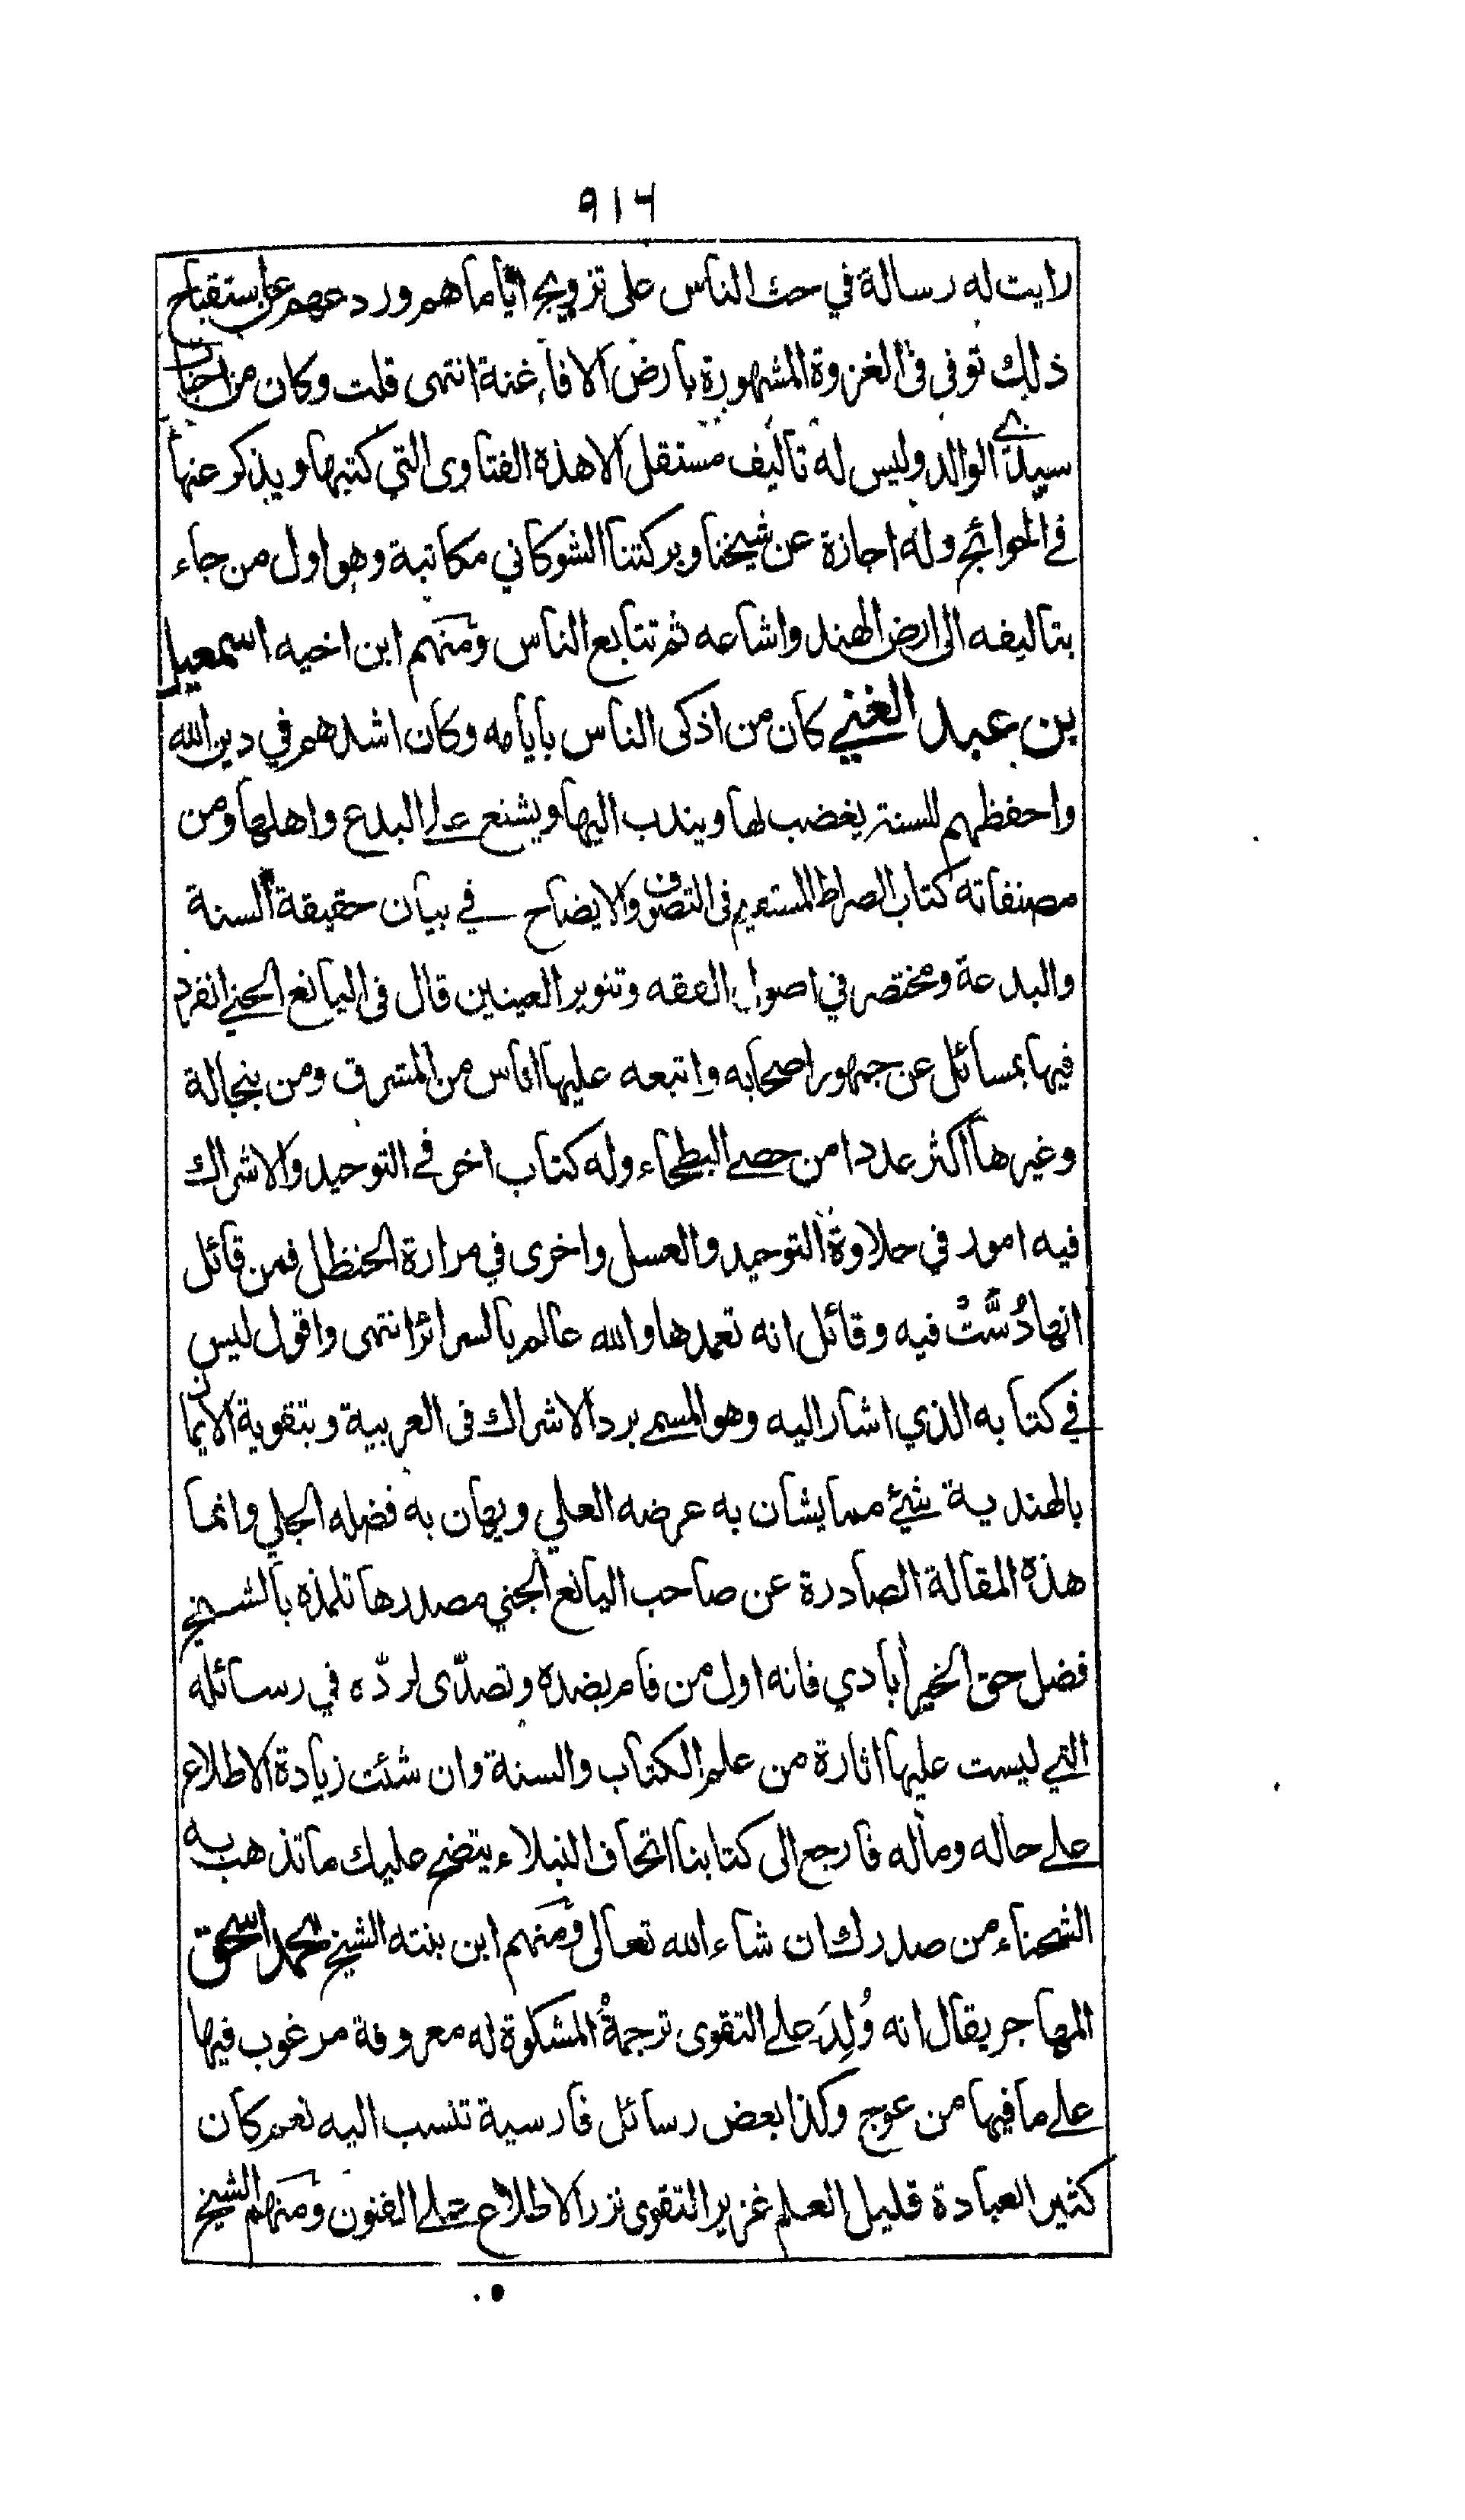 ۹۱۴
رايت له رسالة في حث الناس على تزويج اياماهم وردعهم على استقباح
ذلك توفي فى الغزوة المشهورة بارض الافاغنة انتهى قلت وكان من احباب
سيدي الوالد وليس له تاليف مستقل الا هذه الفتاوى التي كتبها ويذكر عنها
في الحوائج وله اجازة عن شيخنا وبركتنا الشوكاني مكاتبة وهو اول من جاء
بتاليفه الى ارض الهند واشاعه ثم تتابع الناس ومنهم ابن اخيه اسمعيل
بن عبد الغني كان من اذكى الناس بايامه وكان اشدهم في دين الله
واحفظهم للسنة يغضب لها ويندب اليها ويشنع على البدع واهلها ومن
مصنفاته كتاب الصراط المستقيم فى التصوف والايضاح في بيان حقيقة السنة
والبدعة ومختصر في اصول الفقه وتنوير العينين قال فى اليانع الجني انفرد
فيها بمسائل عن جمهور اصحابه واتبعه عليها اناس من المشرق ومن بنجالة
وغيرها اكثر عددا من حصى البطحاء وله كتاب اخر في التوحيد والاشراك
فيه امور في حلاوة التوحيد والعسل واخرى في مرارة الحنظل فمن قائل
انها دُسَّتْ فيه وقائل انه تعمدها والله عالم بالسرائر انتهى واقول ليس
في كتابه الذي اشار اليه وهو المسمى برد الاشراك فى العربية وبتقوية الايمان
بالهندية شيئ مما يشان به عرضه العلي ويهان به فضله الجلي وانما
هذه المقالة الصادرة عن صاحب اليانع الجني مصدرها تلمذه بالشيخ
فضل حق الخيرابادي فانه اول من قام بضده وتصدّى لردّه في رسائله
التي ليست عليها اثارة من علم الكتاب والسنة وان شئت زيادة الاطلاع
على حاله ومآله فارجع الى كتابنا اتحاف النبلاء يتضح عليك ما تذهب به
الشحناء من صدرك ان شاء الله تعالى ومنهم ابن بنته الشيخ محمد اسحق
المهاجر يقال انه وُلِدَ على التقوى ترجمةُ المشكوة له معروفة مرغوب فيها
على ما فيها من عوج وكذا بعض رسائل فارسية تنسب اليه نعم كان
كثير العبادة قليل العلم غزير التقوى نزر الاطلاع على الفنون ومنهم الشيخ